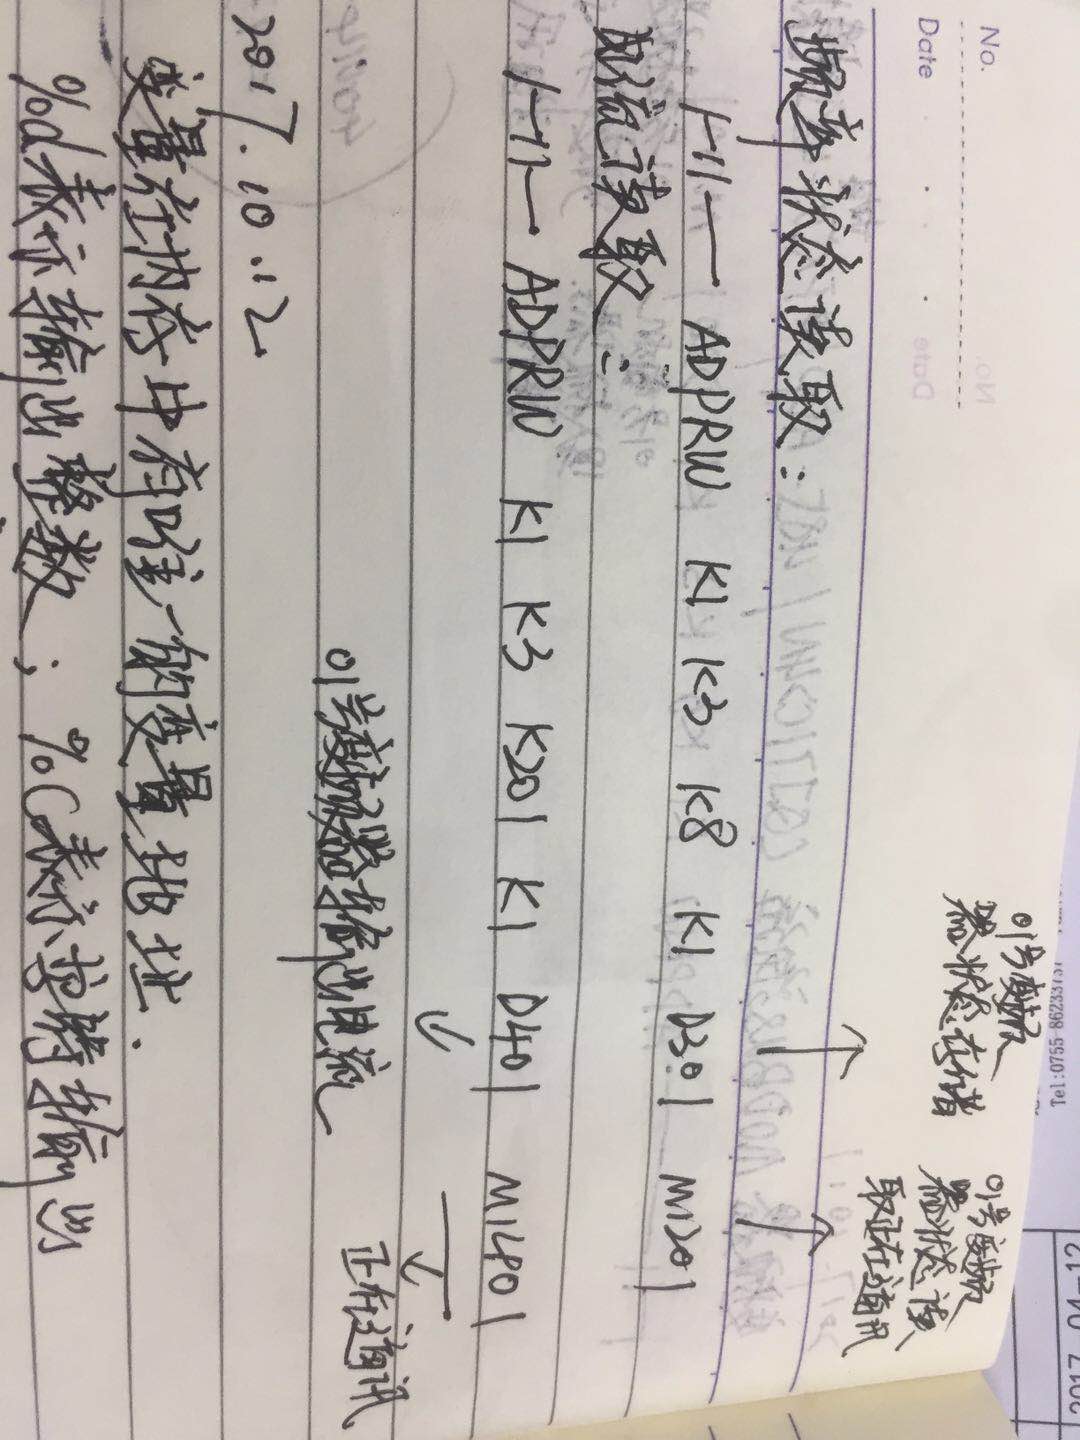 No.
Date
01号变频
器状态存储
01号变频
器状态读
取正在通讯
频率状态读取:
H1 — ADPRW K1 K3 K8 K1 D301 M1201
电流读取:
H1 — ADPRW K1 K3 K201 K1 D401 M1401
01号变频器输出电流
正在通讯
2017.10.12
变量在内存中有唯一的变量地址.
%d表示输出整数; %C表示字符输出
Tel:0755-86233757